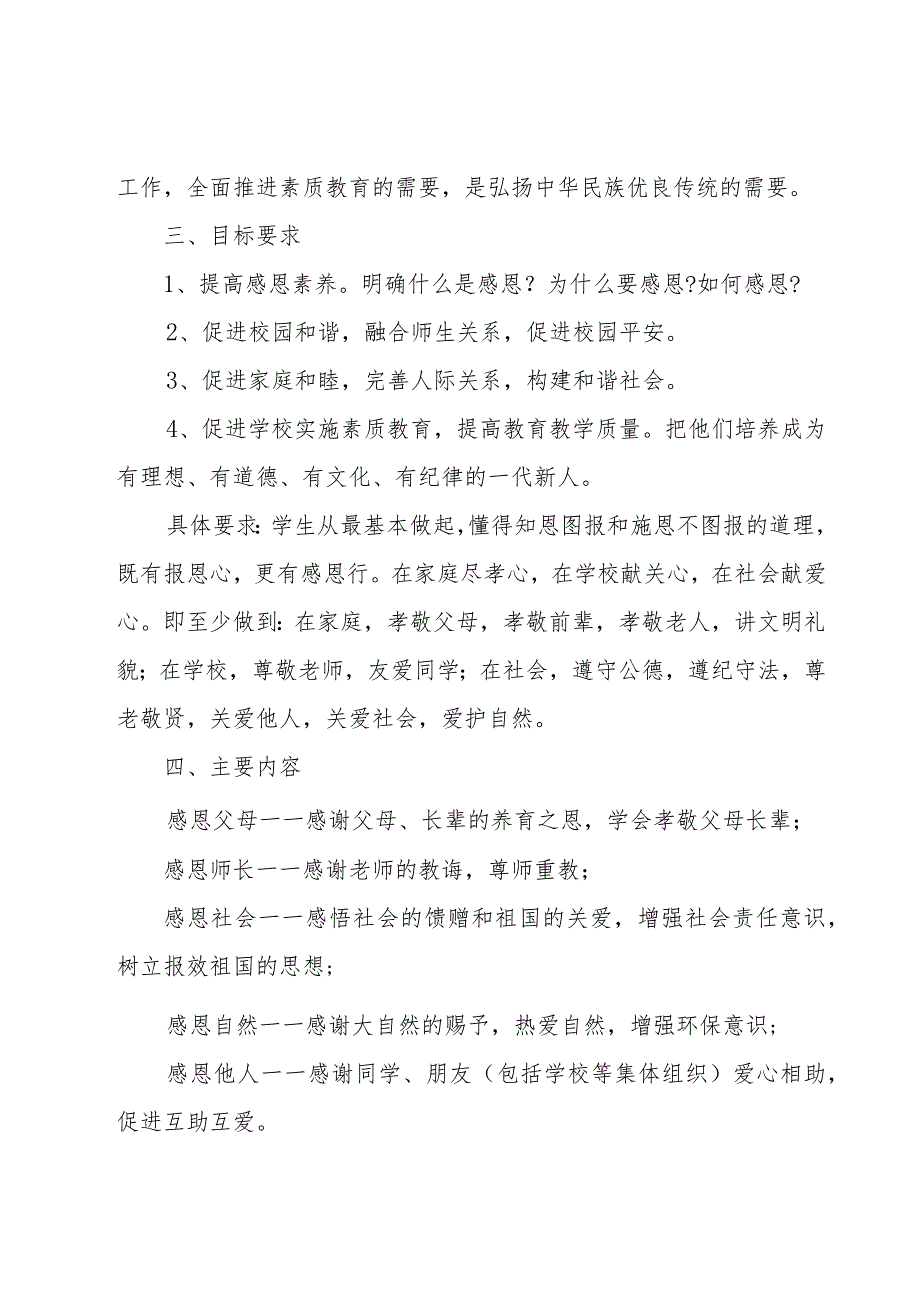 工作，全面推进素质教育的需要，是弘扬中华民族优良传统的需要。
三、目标要求
1、提高感恩素养。明确什么是感恩？为什么要感恩?如何感恩?
2、促进校园和谐，融合师生关系，促进校园平安。
3、促进家庭和睦，完善人际关系，构建和谐社会。
4、促进学校实施素质教育，提高教育教学质量。把他们培养成为
有理想、有道德、有文化、有纪律的一代新人。
具体要求：学生从最基本做起，懂得知恩图报和施恩不图报的道理，
既有报恩心，更有感恩行。在家庭尽孝心，在学校献关心，在社会献爱
心。即至少做到：在家庭，孝敬父母，孝敬前辈，孝敬老人，讲文明礼
貌；在学校，尊敬老师，友爱同学；在社会，遵守公德，遵纪守法，尊
老敬贤，关爱他人，关爱社会，爱护自然。
四、主要内容
感恩父母一一感谢父母、长辈的养育之恩，学会孝敬父母长辈；
感恩师长一一感谢老师的教诲，尊师重教；
感恩社会一一感悟社会的馈赠和祖国的关爱，增强社会责任意识，
树立报效祖国的思想;
感恩自然一一感谢大自然的赐予，热爱自然，增强环保意识;
感恩他人一一感谢同学、朋友（包括学校等集体组织）爱心相助，
促进互助互爱。